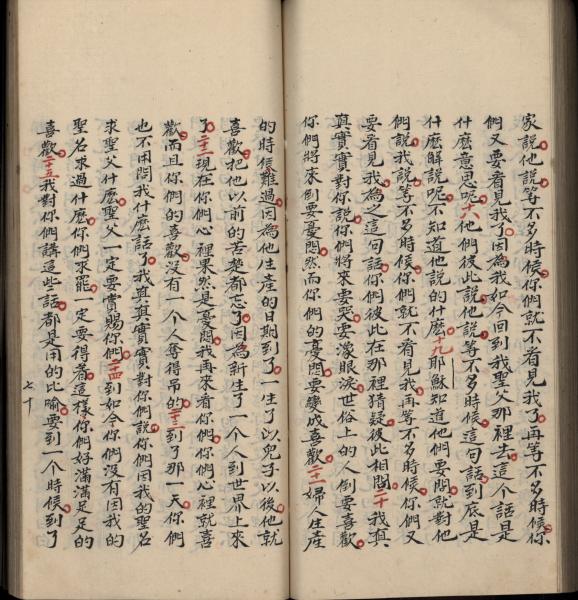 家說他說等不多時候你們就不看見我了再等不多時候你
們又要看見我了因為我如今回到我聖父那裡去這个話是
什麼意思呢十八他們彼此說他說等不多時候這句話到底是
什麼解說呢不知道他說的什麼十九耶穌知道他們要問就對他
們說我說等不多時候你們就不看見我再等不多時候你們又
要看見我為之這句話你們彼此在那裡猜疑彼此相問二十我真
真實實對你說你們將來要哭要濛眼淚世俗上的人倒要喜歡
你們將來倒要憂悶然而你們的憂悶要變成喜歡二十一婦人生產
的時候難過因為他生產的日期到了一生了以兒子以後他就
喜歡把他以前的苦楚都忘了因為新生了一個人到世界上來
了二十二現在你們心裡果然是憂悶我再來看你們你們心裡就喜
歡而且你們的喜歡沒有一个人奪得吊的二十三到了那一天你們
也不用問我什麼話了我真真實實對你們說你們因我的聖名
求聖父什麼聖父一定要賞賜你們二十四到如今你們沒有因我的
聖名求過什麼你們求罷一定要得着這樣你們好滿滿足足的
喜歡二十五我對你們講這些話都是用的比喻要到一個時候到了
七十